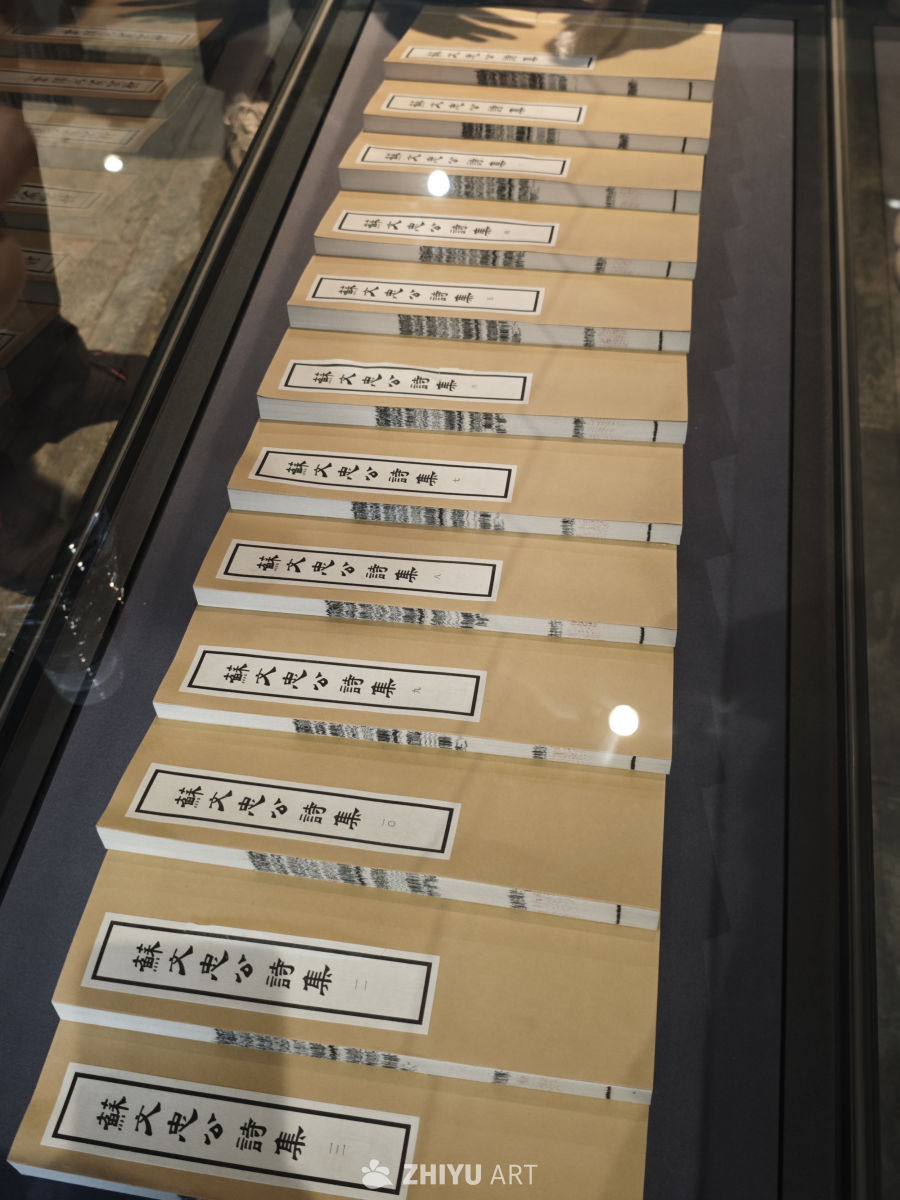 蘇文忠公詩集
蘇文忠公詩集
蘇文忠公詩集
蘇文忠公詩集
蘇文忠公詩集
蘇文忠公詩集
蘇文忠公詩集 七
蘇文忠公詩集 八
蘇文忠公詩集 九
蘇文忠公詩集 一〇
蘇文忠公詩集 一一
蘇文忠公詩集
ZHIYU ART